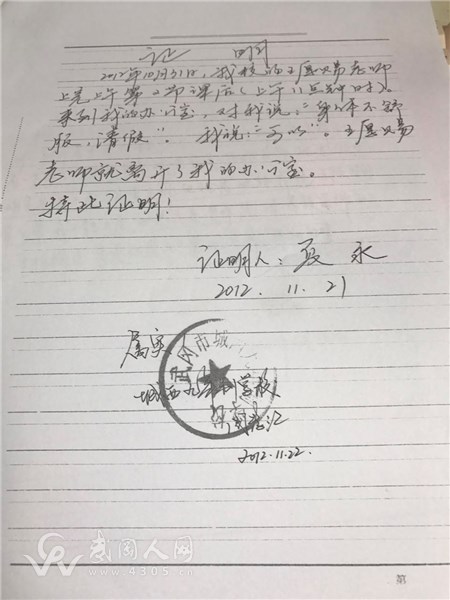 证 明
2012年10月31日，我校的王愿以易老师
上完上午第二节课后（上午11点钟时）。
来到我的办公室，对我说：“身体不舒
服，请假”。我说：“可以”。王愿以易
老师就离开了我的办公室。
特此证明！
证明人：夏永
2012. 11. 21
属实
武冈市城
城西九年制学校
2012.11.22.
武冈人网
www.4305.cn
第